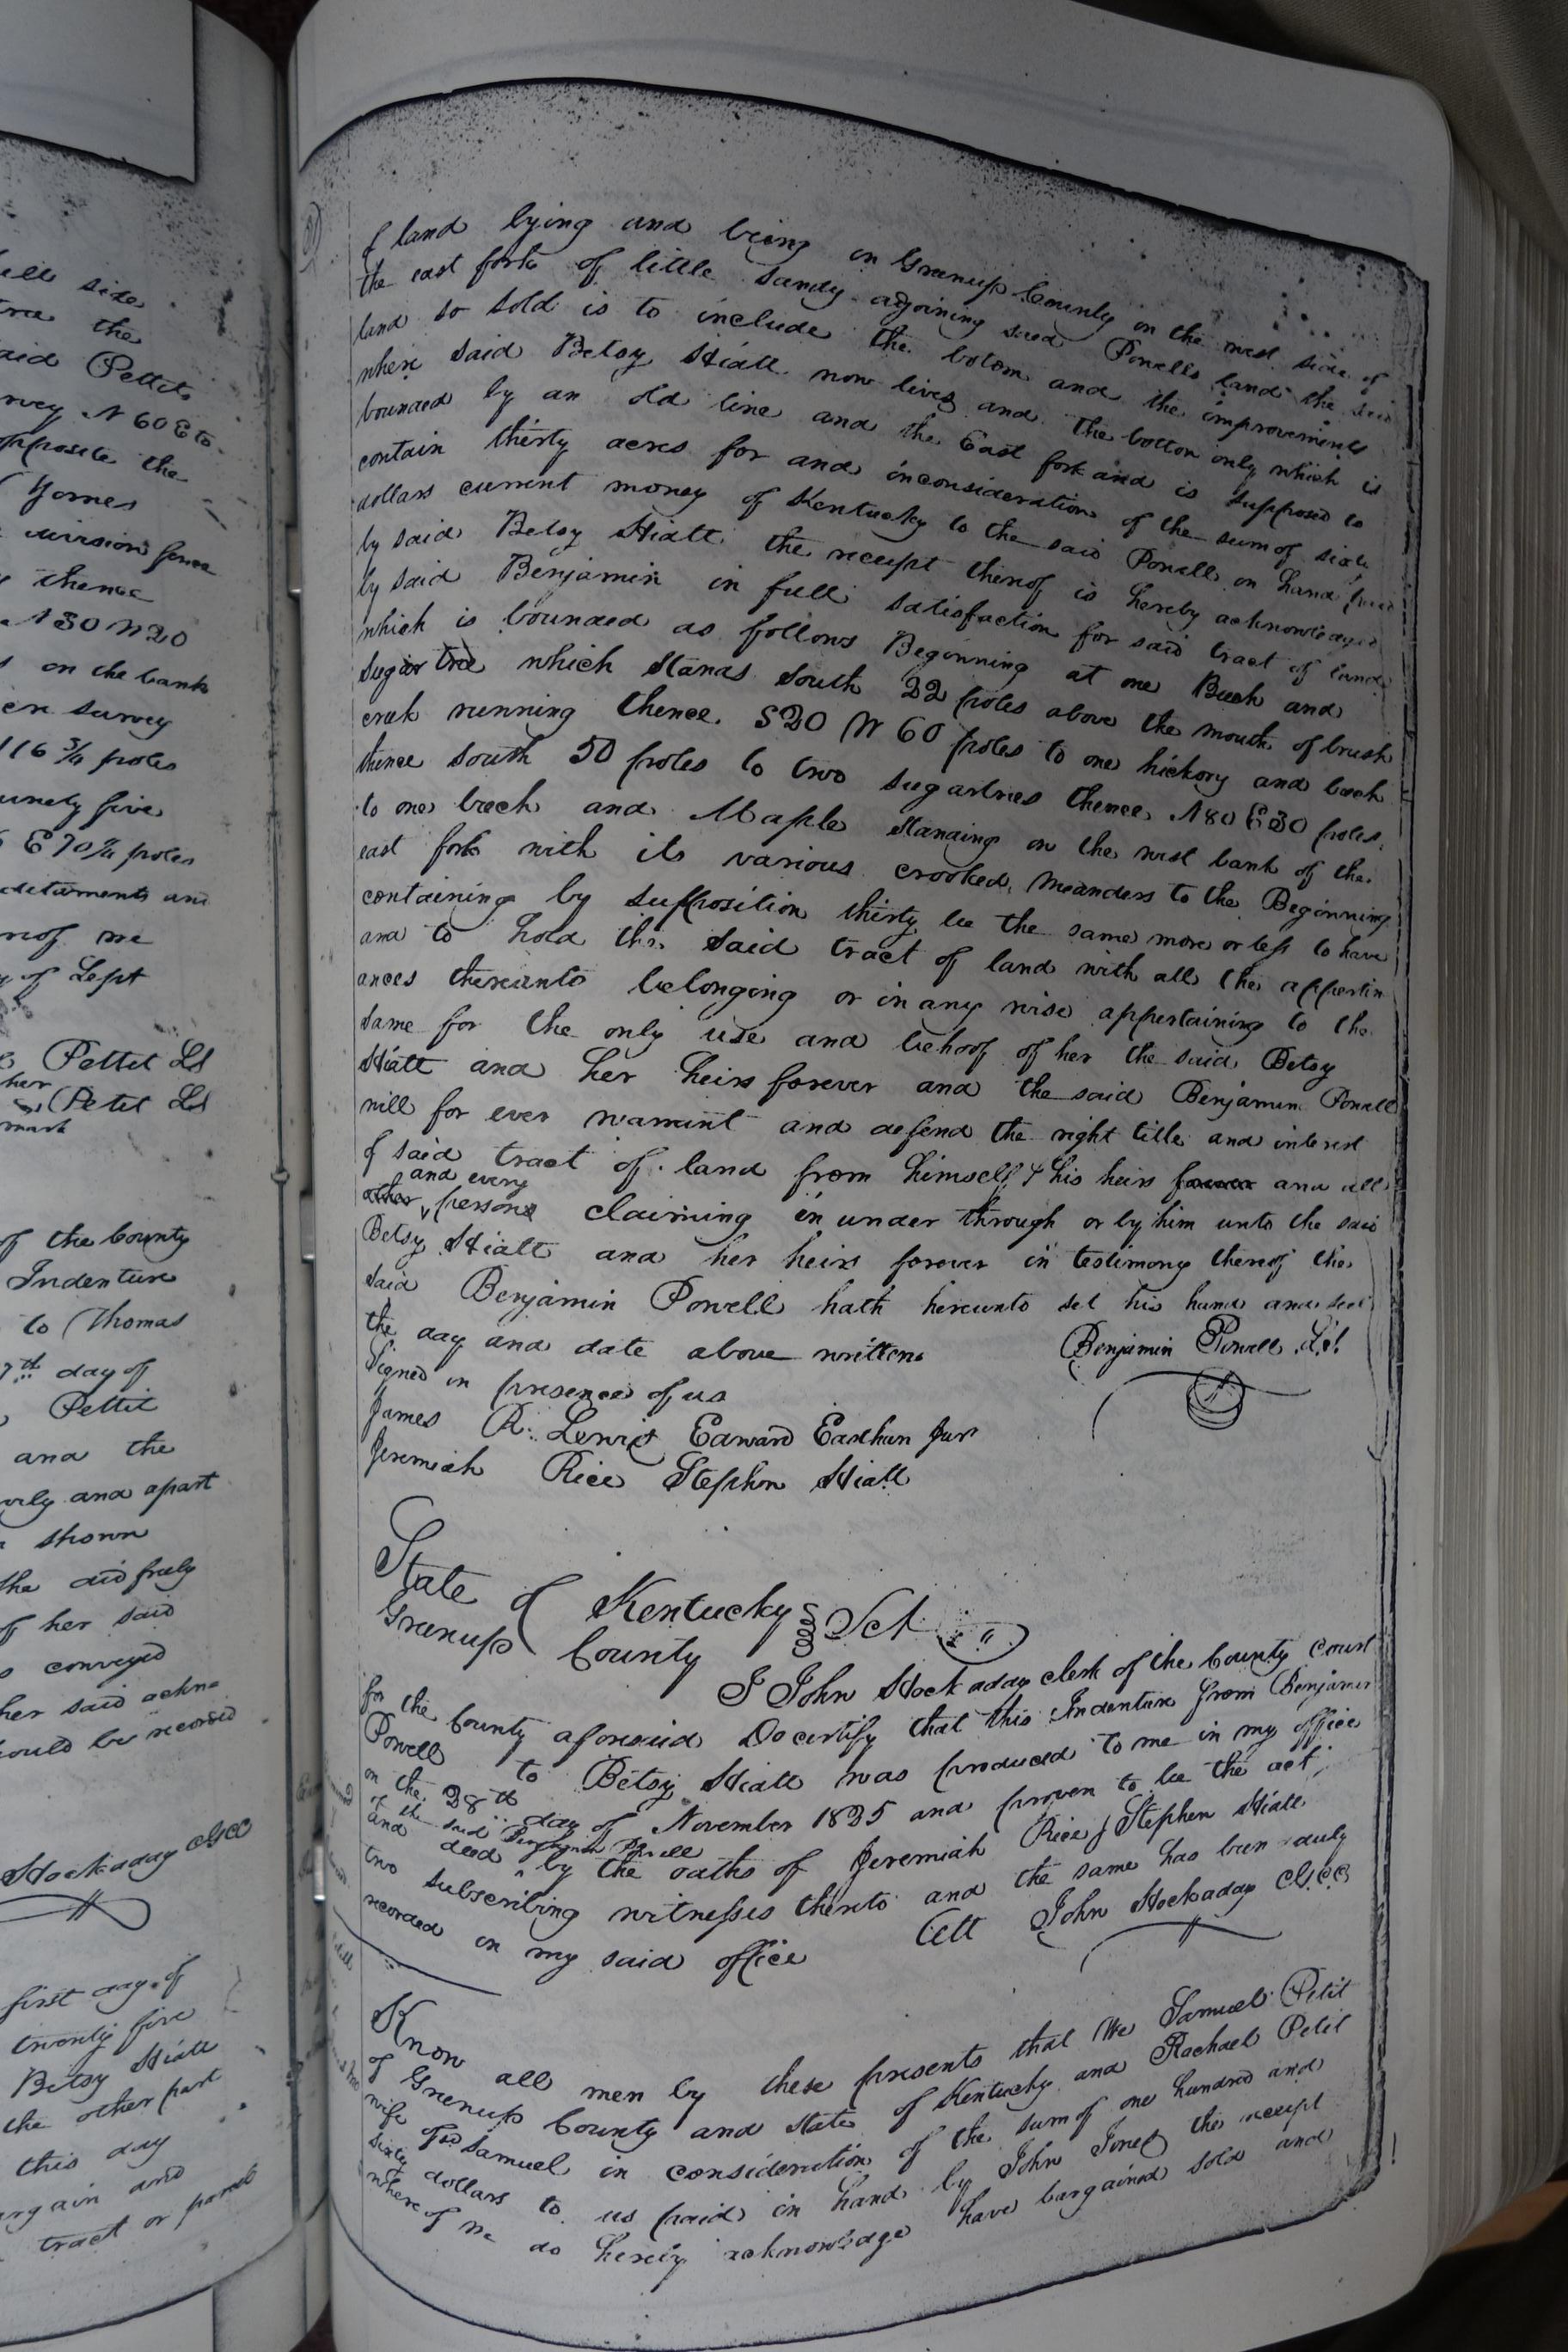 ill side
tree the
aid Pettits
rvey N 60 E to
opposite the
Jornes
division fence
thence
N 30 W 20
on the bank
en survey
116 3/4 poles
unety five
E 70 3/4 poles
ditaments and
reof we
y of Sept
Pettit Ls
her
Petit Ls
mark
of the County
Indenture
to Thomas
7th day of
Pettit
and the
vily and apart
shown
she did freely
of her said
conveyed
her said ackno
ould be recorded
Hockaday CGCC
first day of
twenty five
Betsy Hiatt
the other part
this day
argain and
tract or parcel
of land lying and being in Greenup County on the west side of
the east fork of little Sandy adjoining said Powells land the said
land so sold is to include the botom and the improvements
where said Betsy Hiatt now lives and the bottom only which is
bounded by an old line and the East fork and is supposed to
contain thirty acres for and inconsideration of the sum of sixty
dollars current money of Kentucky to the said Powell in hand paid
by said Betsy Hiatt the receipt thereof is hereby acknowledged
by said Benjamin in full satisfaction for said tract of land
which is bounded as follows Beginning at one Beech and
Sugar tree which stands South 22 poles above the mouth of brush
creek running thence S20 W 60 poles to one hickory and beech
thence South 50 poles to two sugartrees thence N80 E30 poles
to one beech and Maple standing on the west bank of the
east fork with its various crooked meanders to the Beginning
containing by supposition thirty be the same more or less to have
and to hold the said tract of land with all the appertin
ances thereunto belonging or in any wise appertaining to the
same for the only use and behoof of her the said Betsy
Hiatt and her heirs forever and the said Benjamin Powell
will for ever warrant and defend the right title and interest
of said tract of land from himself & his heirs forever and all
and every
other persons claiming in under through or by him unto the said
Betsy Hiatt and her heirs forever in testimony thereof the
said Benjamin Powell hath hereunto set his hand and seal
the day and date above written
Benjamin Powell Ls
Signed in presence of us
James R. Lewis Edward Easthan Jur
Jeremiah Rice Stephen Hiatt
State of Kentucky Sct
Greenup County
I John Hockaday clerk of the County Court
for the County aforesaid Do certify that this Indenture from Benjamin
Powell to Betsy Hiatt was produced to me in my office
on the 28th day of November 1825 and proven to be the act
of the said Benjamin Powell
and deed by the oaths of Jeremiah Rice & Stephen Hiatt
two subscribing witnesses thereto and the same has been duly
recorded in my said office
Att John Hockaday CGCC
Know all men by these presents that We Samuel Petit
of Greenup County and State of Kentucky and Rachael Petit
wife of sd Samuel in consideration of the sum of one hundred and
sixty dollars to us paid in hand by John Jones the receipt
where of we do hereby acknowledge have bargained sold and